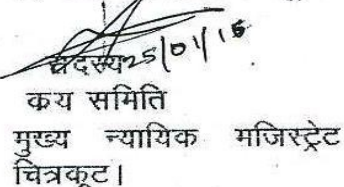 सदस्य 25/01/16
कय समिति
मुख्य न्यायिक मजिस्ट्रेट
चित्रकूट।